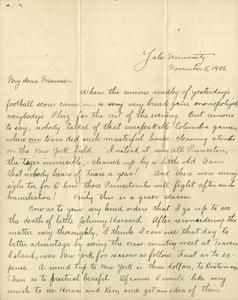 Yale University
November 5, 1905
My dear Mama:-
When the curious medley of yesterday's
football scores came in, a very very broad grin monopolized
everybody's Phiz for the rest of the evening. But curious
to say, nobody talked of that unspeakable Columbia game,
where our team did such masterful house cleaning stunts
on the New York field. Instead it was all Princeton,
the tiger invincible, cleaned up by a little old team
that nobody hears of twice a year! And there were many
sighs too, for O how those Princetonites will fight after such
humiliation! Verily this is a queer season.
Now as to your very kind orders that I go up to see
the death of little Johnny Harvard. After reconsidering the
matter very thoroughly, I think I can use that day to
better advantage by seeing the cross country meet at Travers
Island, near New York for reasons as follows: First as to ex-
pense. A round trip to New York is three dollars, to Boston,
Then as to practical benefit. Of course I would like very
much to see Horace and Ken, and get an idea of their